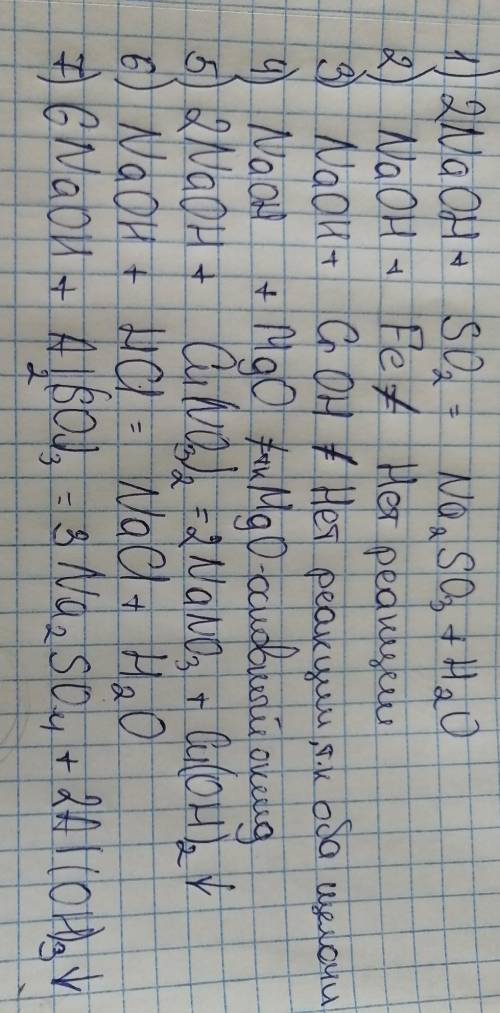 1) 2NaOH + SO₂ = Na₂SO₃ + H₂O
2) NaOH + Fe ≠ Нет реакции
3) NaOH + CrOH ≠ Нет реакции, т.к оба щелочи
4) NaOH + MgO ≠ т.к MgO - основный оксид
5) 2NaOH + Cu(NO₃)₂ = 2NaNO₃ + Cu(OH)₂↓
6) NaOH + HCl = NaCl + H₂O
7) 6NaOH + Al₂(SO₄)₃ = 3Na₂SO₄ + 2Al(OH)₃↓